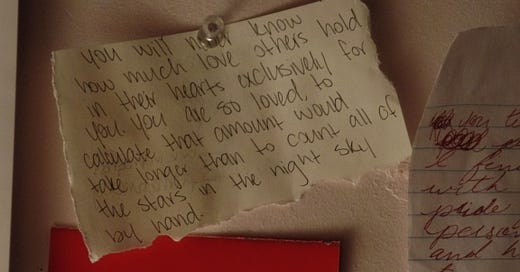 you will know
how much love others hold
in their hearts exclusively for
you. you are so loved, to
calculate that amount would
take longer than to count all of
the stars in the night sky
by hand.
I fin
with
pride
person
and h